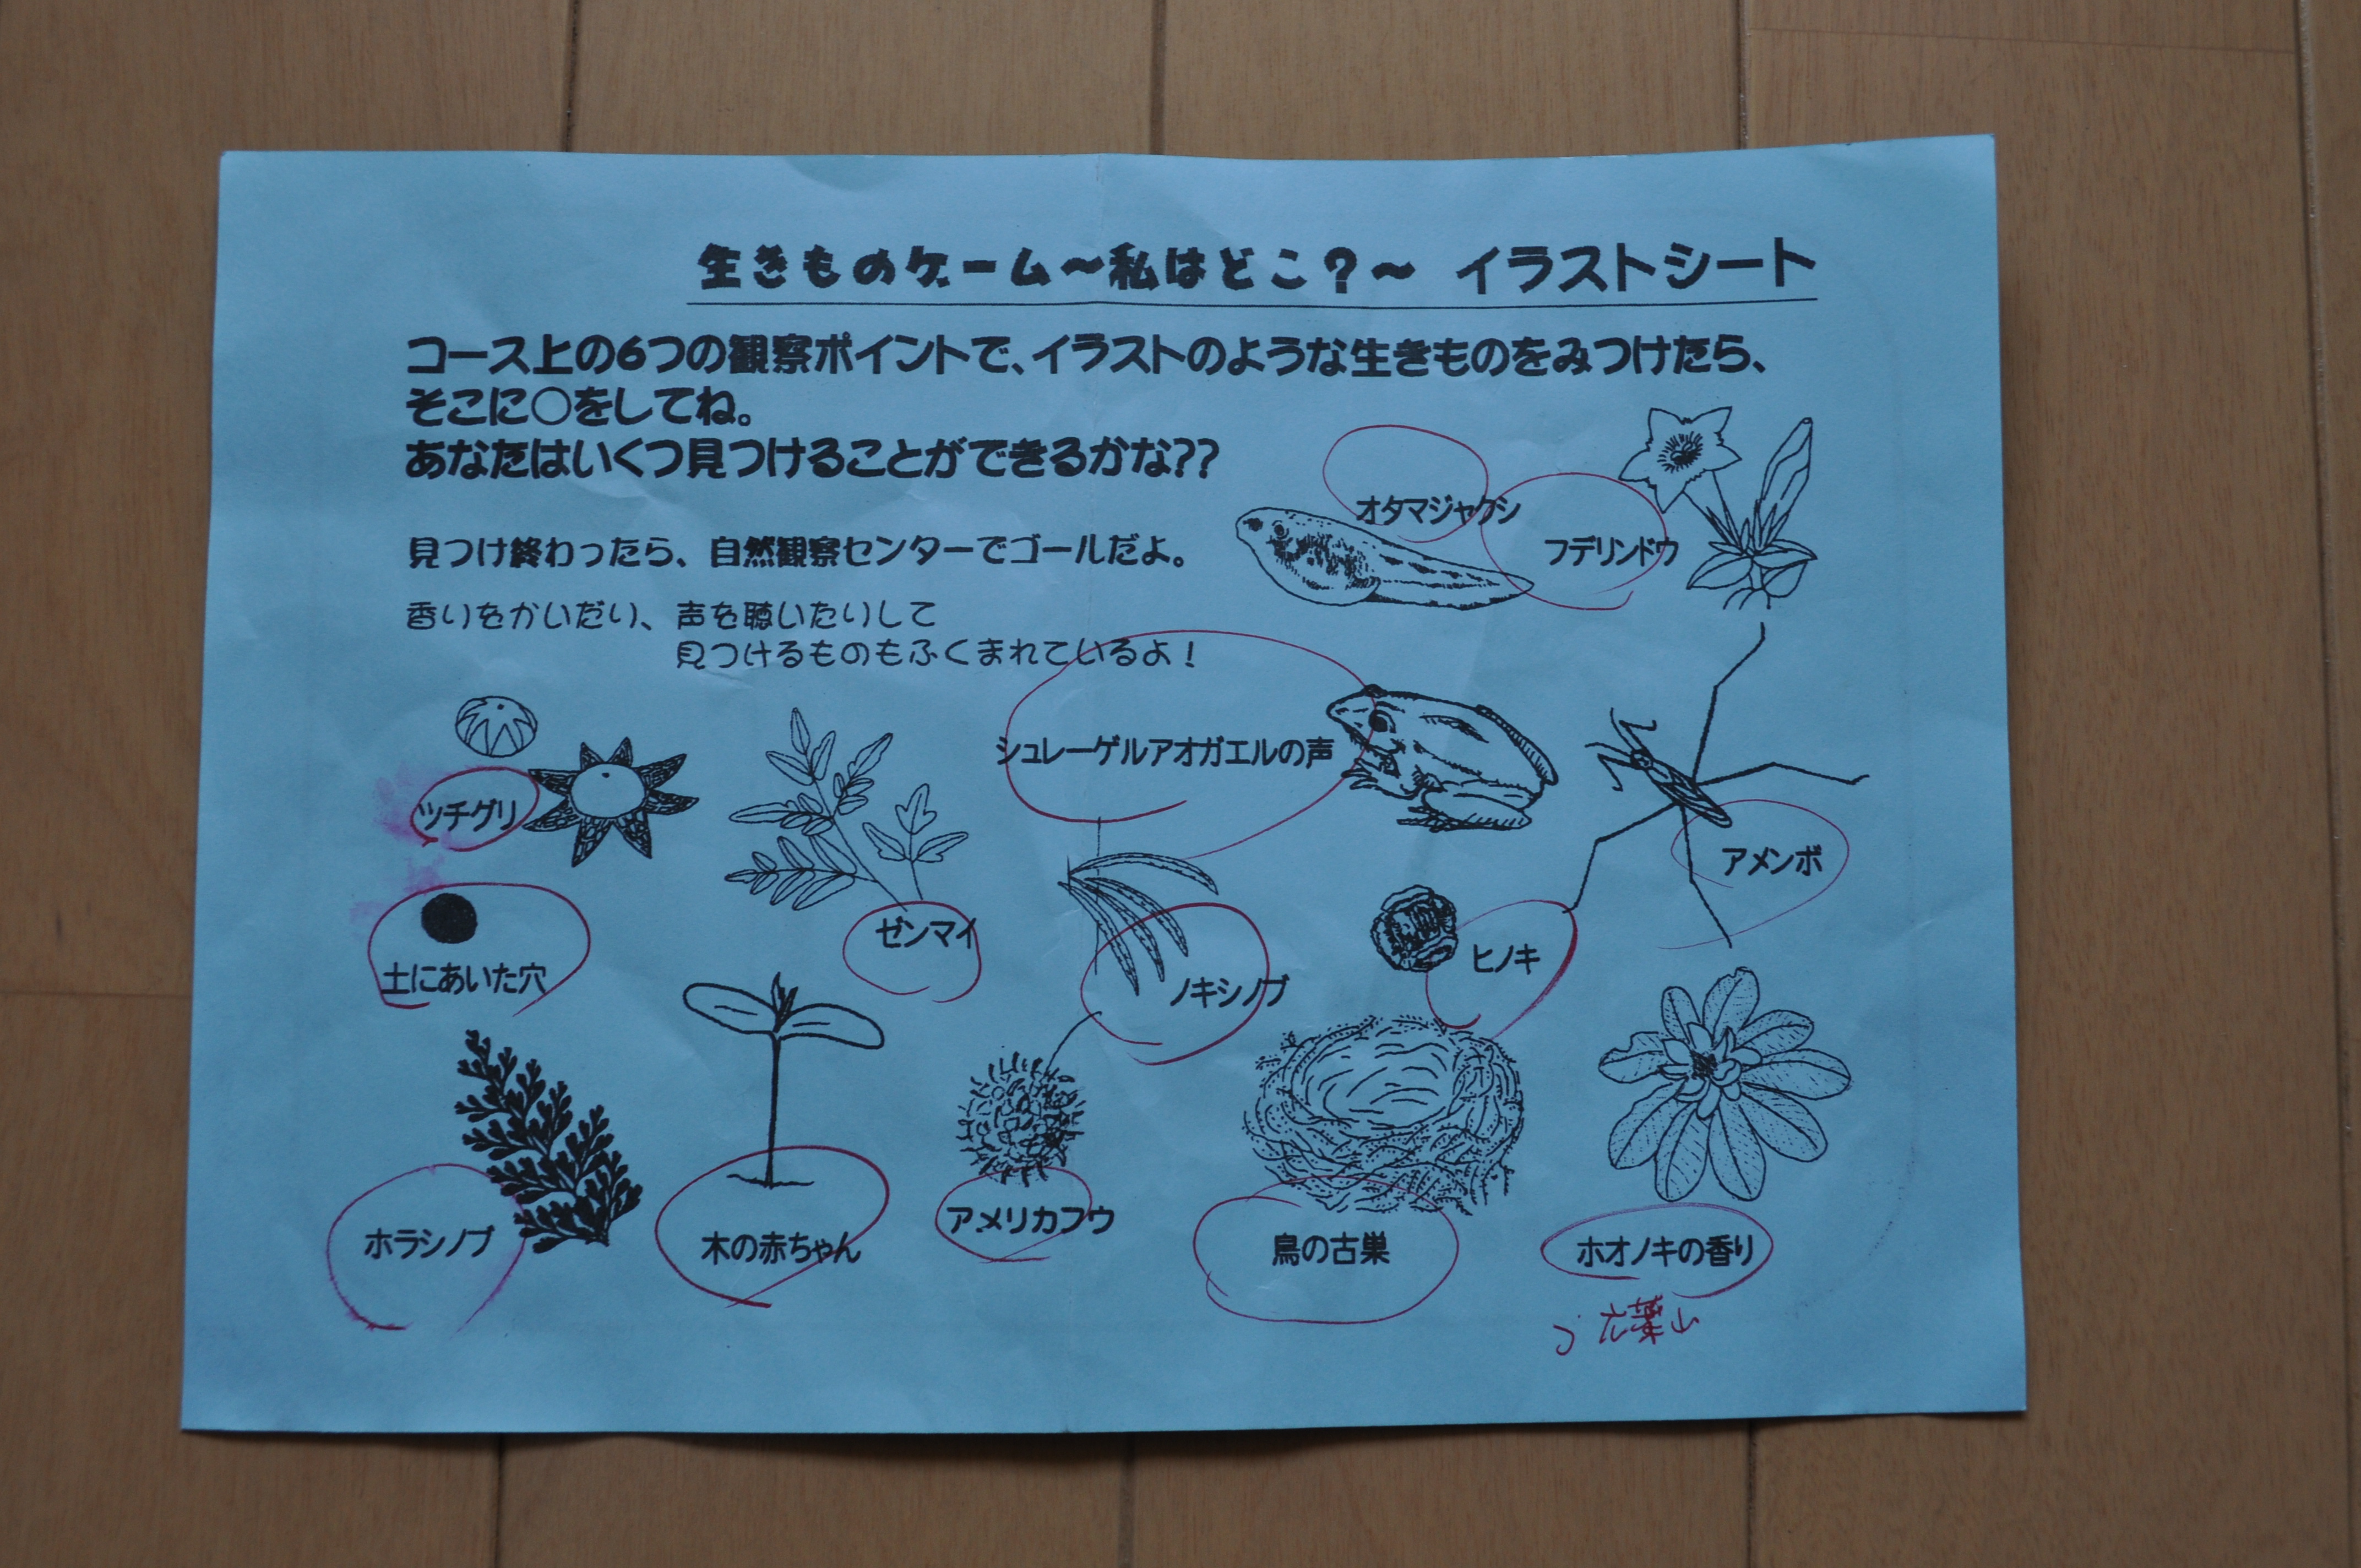 生きものゲーム～私はどこ？～ イラストシート
コース上の6つの観察ポイントで、イラストのような生きものをみつけたら、
そこに○をしてね。
あなたはいくつ見つけることができるかな??
見つけ終わったら、自然観察センターでゴールだよ。
香りをかいだり、声を聴いたりして
見つけるものもふくまれているよ！
オタマジャクシ
フデリンドウ
シュレーゲルアオガエルの声
ツチグリ
アメンボ
ゼンマイ
ヒノキ
土にあいた穴
ノキシノブ
アメリカフウ
ホラシノブ
木の赤ちゃん
鳥の古巣
ホオノキの香り